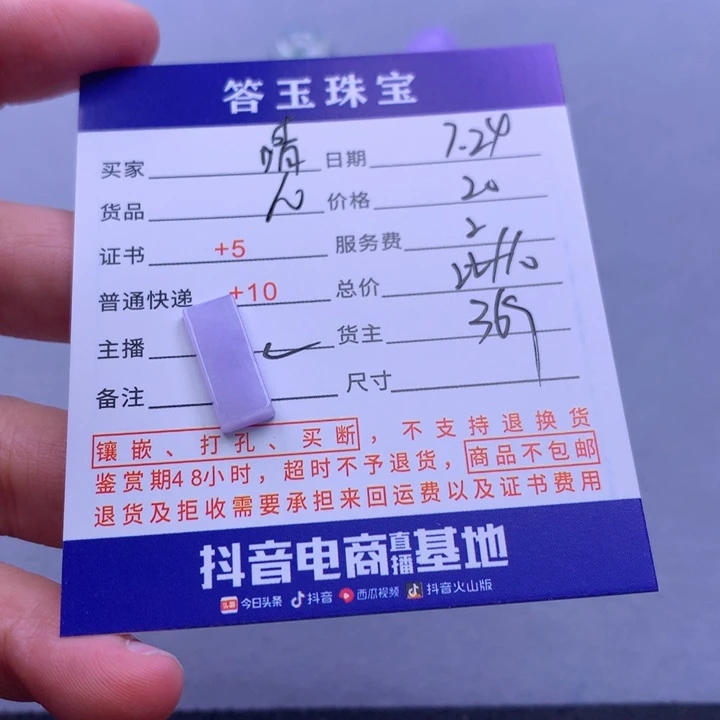 答玉珠宝
买家 晴 日期 7.24
货品 价格 20
证书 +5 服务费 2
普通快递 +10 总价
主播 货主 369
备注 尺寸
镶嵌、打孔、买断，不支持退换货
鉴赏期48小时，超时不予退货，商品不包邮
退货及拒收需要承担来回运费以及证书费用
抖音电商直播基地
头条 今日头条 抖音 西瓜视频 抖音火山版